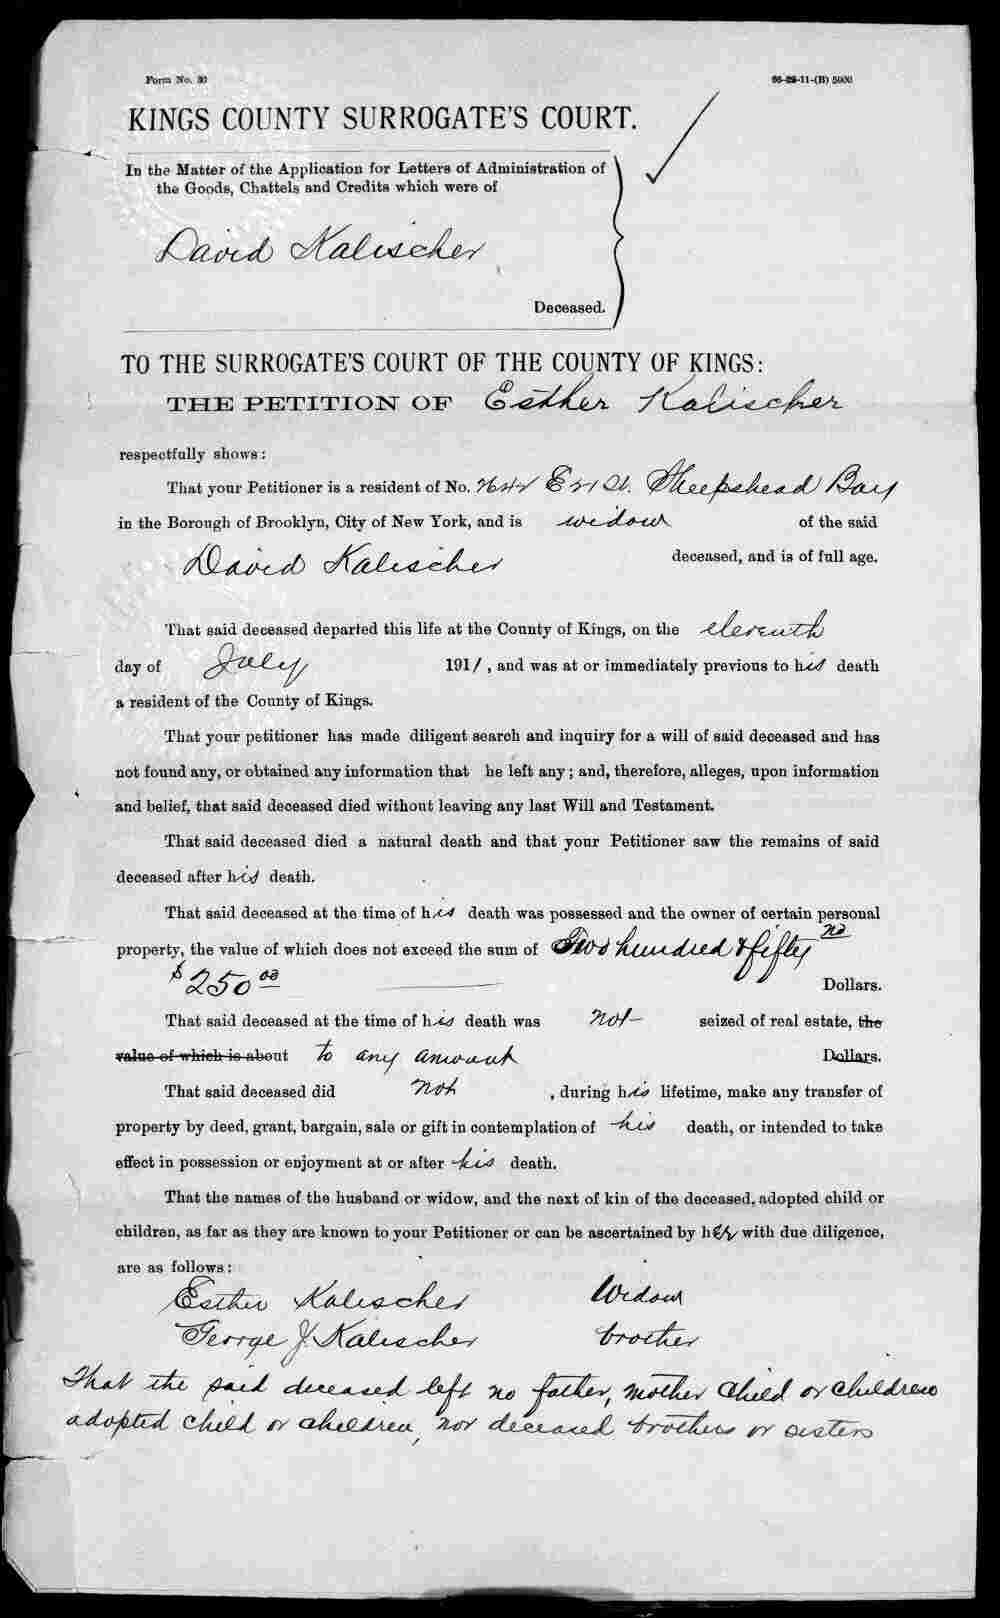 Form No. 30
66-29-11-(B) 5000
KINGS COUNTY SURROGATE'S COURT.
In the Matter of the Application for Letters of Administration of
the Goods, Chattels and Credits which were of
David Kalischer
Deceased.
TO THE SURROGATE'S COURT OF THE COUNTY OF KINGS:
THE PETITION OF Esther Kalischer
respectfully shows:
That your Petitioner is a resident of No. E St. Sheepshead Bay
in the Borough of Brooklyn, City of New York, and is widow of the said
David Kalischer deceased, and is of full age.
That said deceased departed this life at the County of Kings, on the eleventh
day of July 1911, and was at or immediately previous to his death
a resident of the County of Kings.
That your petitioner has made diligent search and inquiry for a will of said deceased and has
not found any, or obtained any information that he left any; and, therefore, alleges, upon information
and belief, that said deceased died without leaving any last Will and Testament.
That said deceased died a natural death and that your Petitioner saw the remains of said
deceased after his death.
That said deceased at the time of his death was possessed and the owner of certain personal
property, the value of which does not exceed the sum of Two hundred & fifty no
$250.00 Dollars.
That said deceased at the time of his death was not seized of real estate, the
value of which is about to any amount Dollars.
That said deceased did not, during his lifetime, make any transfer of
property by deed, grant, bargain, sale or gift in contemplation of his death, or intended to take
effect in possession or enjoyment at or after his death.
That the names of the husband or widow, and the next of kin of the deceased, adopted child or
children, as far as they are known to your Petitioner or can be ascertained by her with due diligence,
are as follows:
Esther Kalischer Widow
George J. Kalischer brother
That the said deceased left no father, mother child or children
adopted child or children, nor deceased brothers or sisters